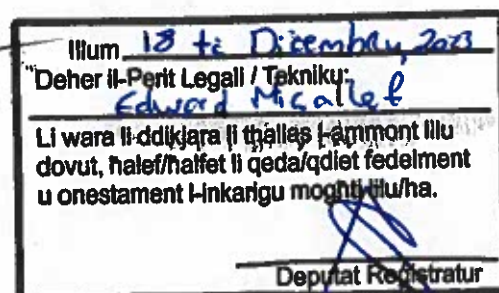 Illum 18 ta Dicembru, 2023
Deher il-Perit Legali / Tekniku:
Edward Micallef
Li wara li ddikjara li tħallas l-ammont lilu
dovut, ħalef/ħalfet li qeda/qdiet fedelment
u onestament l-inkarigu mogħti lilu/ha.
Deputat Reġistratur